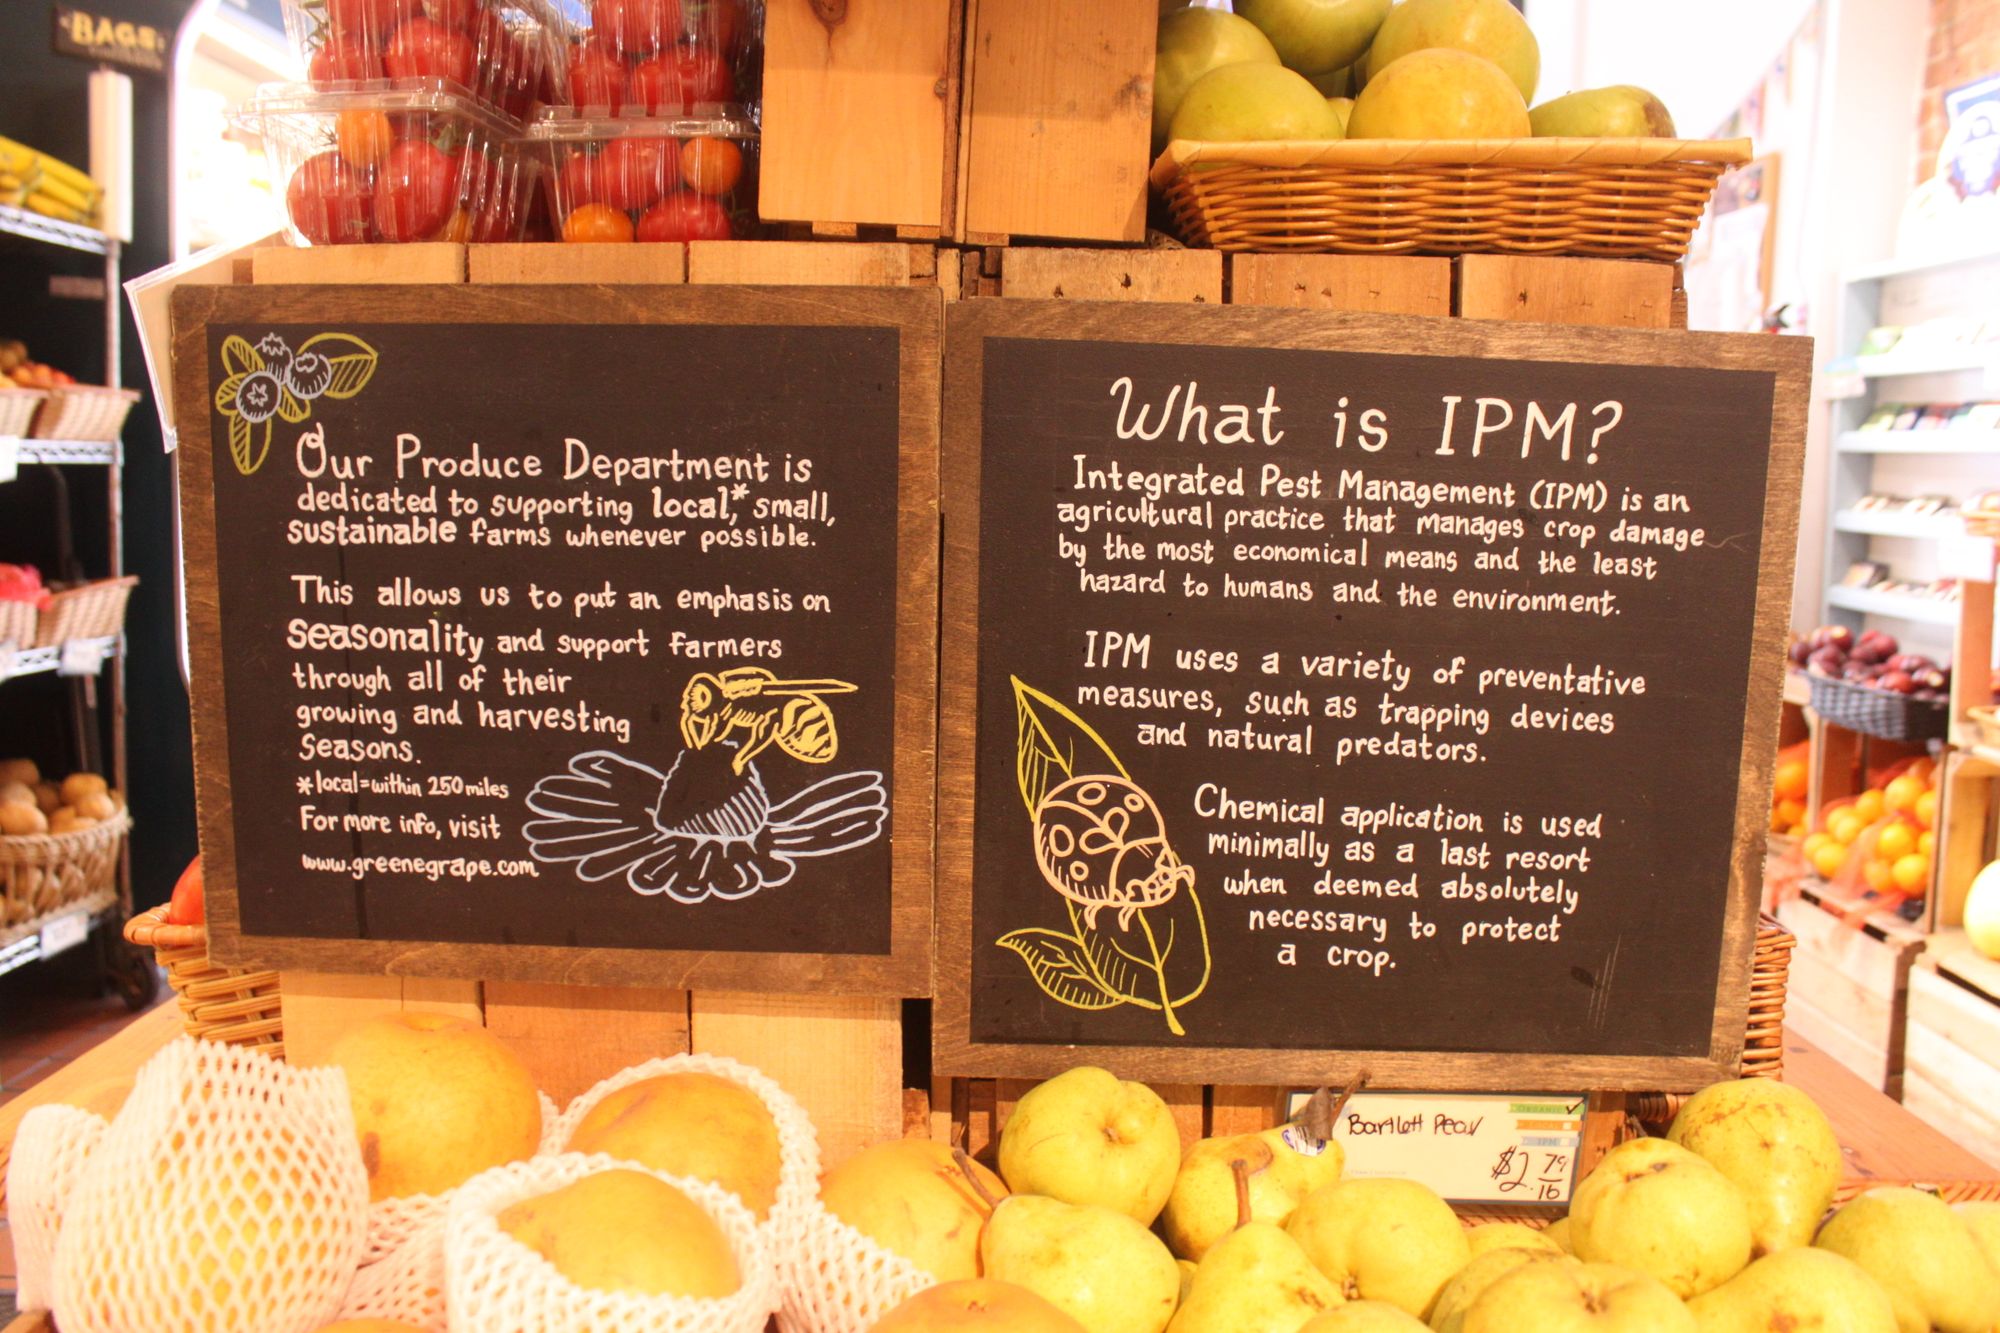 BAGS
Our Produce Department is
dedicated to supporting local,* small,
sustainable farms whenever possible.
This allows us to put an emphasis on
Seasonality and support farmers
through all of their
growing and harvesting
Seasons.
*local=within 250 miles
For more info, visit
www.greenegrape.com
What is IPM?
Integrated Pest Management (IPM) is an
agricultural practice that manages crop damage
by the most economical means and the least
hazard to humans and the environment.
IPM uses a variety of preventative
measures, such as trapping devices
and natural predators.
Chemical application is used
minimally as a last resort
when deemed absolutely
necessary to protect
a crop.
Bartlett Pear
ORGANIC ✓
LOCAL
IPM
$2.79
lb